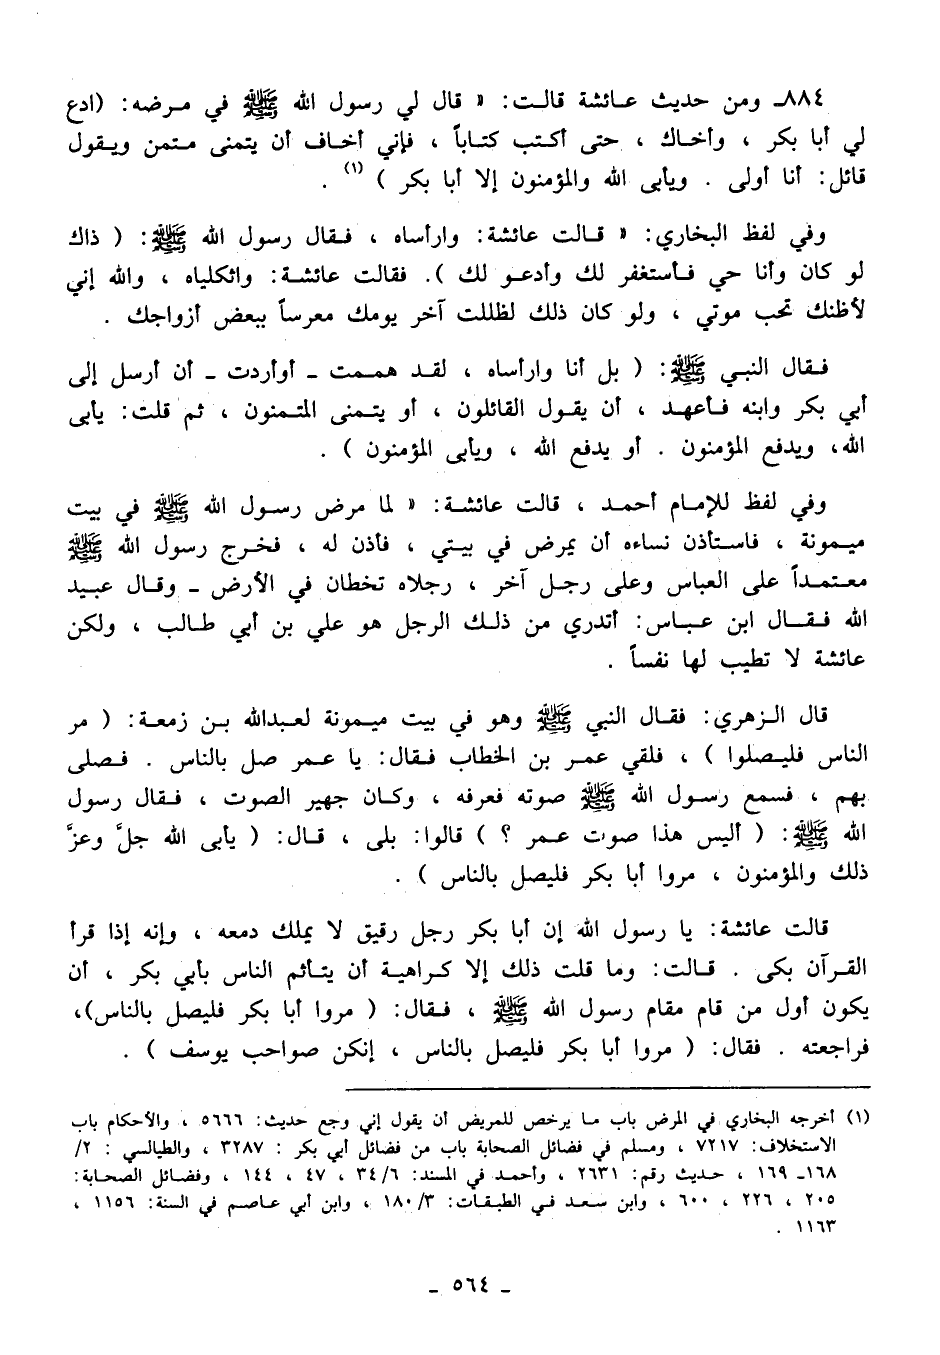 ٨٨٤ـ ومن حديث عائشة قالت: « قال لي رسول الله ﷺ في مرضه: (ادع
لي أبا بكر ، وأخاك ، حتى أكتب كتاباً ، فإني أخاف أن يتمنى متمن ويقول
قائل: أنا أولى . ويأبى الله والمؤمنون إلا أبا بكر ) (١) .
وفي لفظ البخاري: « قالت عائشة: وارأساه ، فقال رسول الله ﷺ: ( ذاك
لو كان وأنا حي فأستغفر لك وأدعو لك ). فقالت عائشة: واثكلياه ، والله إني
لأظنك تحب موتي ، ولو كان ذلك لظللت آخر يومك معرساً ببعض أزواجك .
فقال النبي ﷺ: ( بل أنا وارأساه ، لقد هممت ـ أوأردت ـ أن أرسل إلى
أبي بكر وابنه فأعهد ، أن يقول القائلون ، أو يتمنى المتمنون ، ثم قلت: يأبى
الله، ويدفع المؤمنون . أو يدفع الله ، ويأبى المؤمنون ) .
وفي لفظ للإمام أحمد ، قالت عائشة: « لما مرض رسول الله ﷺ في بيت
ميمونة ، فاستأذن نساءه أن يمرض في بيتي ، فأذن له ، فخرج رسول الله ﷺ
معتمداً على العباس وعلى رجل آخر ، رجلاه تخطان في الأرض ـ وقال عبيد
الله فقال ابن عباس: أتدري من ذلك الرجل هو علي بن أبي طالب ، ولكن
عائشة لا تطيب لها نفساً .
قال الزهري: فقال النبي ﷺ وهو في بيت ميمونة لعبدالله بن زمعة: ( مر
الناس فليصلوا ) ، فلقي عمر بن الخطاب فقال: يا عمر صل بالناس . فصلى
بهم ، فسمع رسول الله ﷺ صوته فعرفه ، وكان جهير الصوت ، فقال رسول
الله ﷺ: ( أليس هذا صوت عمر ؟ ) قالوا: بلى ، قال: ( يأبى الله جلَّ وعزَّ
ذلك والمؤمنون ، مروا أبا بكر فليصل بالناس ) .
قالت عائشة: يا رسول الله إن أبا بكر رجل رقيق لا يملك دمعه ، وإنه إذا قرأ
القرآن بكى . قالت: وما قلت ذلك إلا كراهية أن يتأثم الناس بأبي بكر ، أن
يكون أول من قام مقام رسول الله ﷺ ، فقال: ( مروا أبا بكر فليصل بالناس)،
فراجعته . فقال: ( مروا أبا بكر فليصل بالناس ، إنكن صواحب يوسف ) .
(١) أخرجه البخاري في المرض باب ما يرخص للمريض أن يقول إني وجع حديث: ٥٦٦٦ ، والأحكام باب
الاستخلاف: ٧٢١٧ ، ومسلم في فضائل الصحابة باب من فضائل أبي بكر : ٣٢٨٧ ، والطيالسي : ٢/
١٦٨ـ ١٦٩ ، حديث رقم: ٢٦٣١ ، وأحمد في المسند: ٣٤/٦ ، ٤٧ ، ١٤٤ ، وفضائل الصحابة:
٢٠٥ ، ٢٢٦ ، ٦٠٠ ، وابن سعد في الطبقات: ١٨٠/٣ ، وابن أبي عاصم في السنة: ١١٥٦ ،
١١٦٣ .
ـ ٥٦٤ ـ